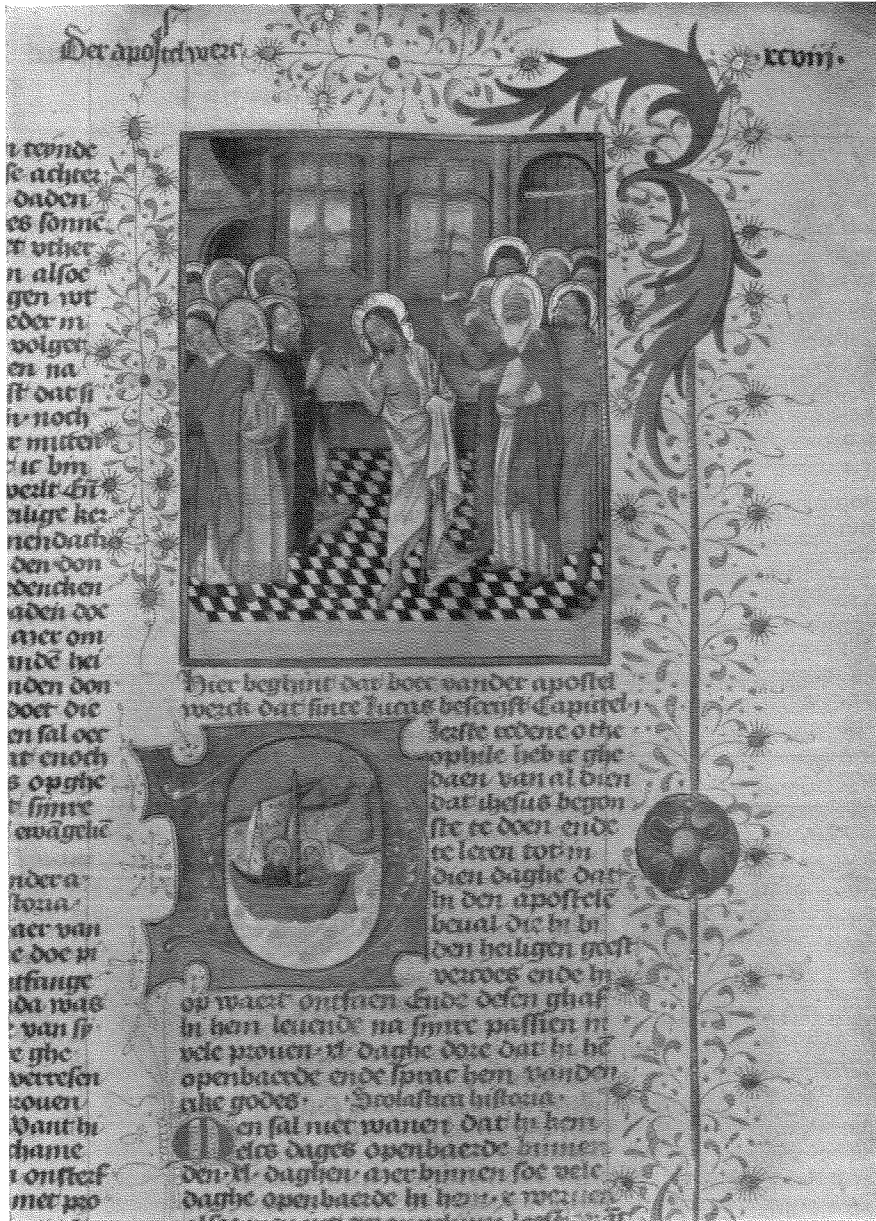 Der apostel werc
xcviij.
n teynde
se achter
daden
es sonne
rt vther
n alsoe
gen wt
eder in
volget
en na
st dat si
n noch
r mitten
ic bin
werlt En̄
eilige ker
nendach
den don
edencken
aden doe
mer om
ande hei
nden don
boec die
en sal oec
at enoch
s opghe
sinre
ewāgeliē
nder a
storia
aer van
e doe pi
ntfange
nda was
van sy
e ghe
verresen
rouen
Want hi
chame
n onsterf
met pro
Hier beghint dat boec vander apostel
werck dat sinte lucas bescrijft Capittel j
Ierste redene o the
ophile heb ic ghe
daen van al dien
dat ihesus begon
ste te doen ende
te leren tot in
dien daghe dat
hi den apostelē
beual die hi bi
den heiligen geest
vercoes ende hi
op waert ontfaen Ende desen ghaf
hi hem leuende na sinre passien in
vele prouen xl daghe dore dat hi hē
openbaerde ende sprac hem vanden
rike godes Scolastica historia
Men sal niet wanen dat hi hem
elcs dages openbaerde binnen
den xl daghen mer binnen soe vele
daghe openbaerde hi hem